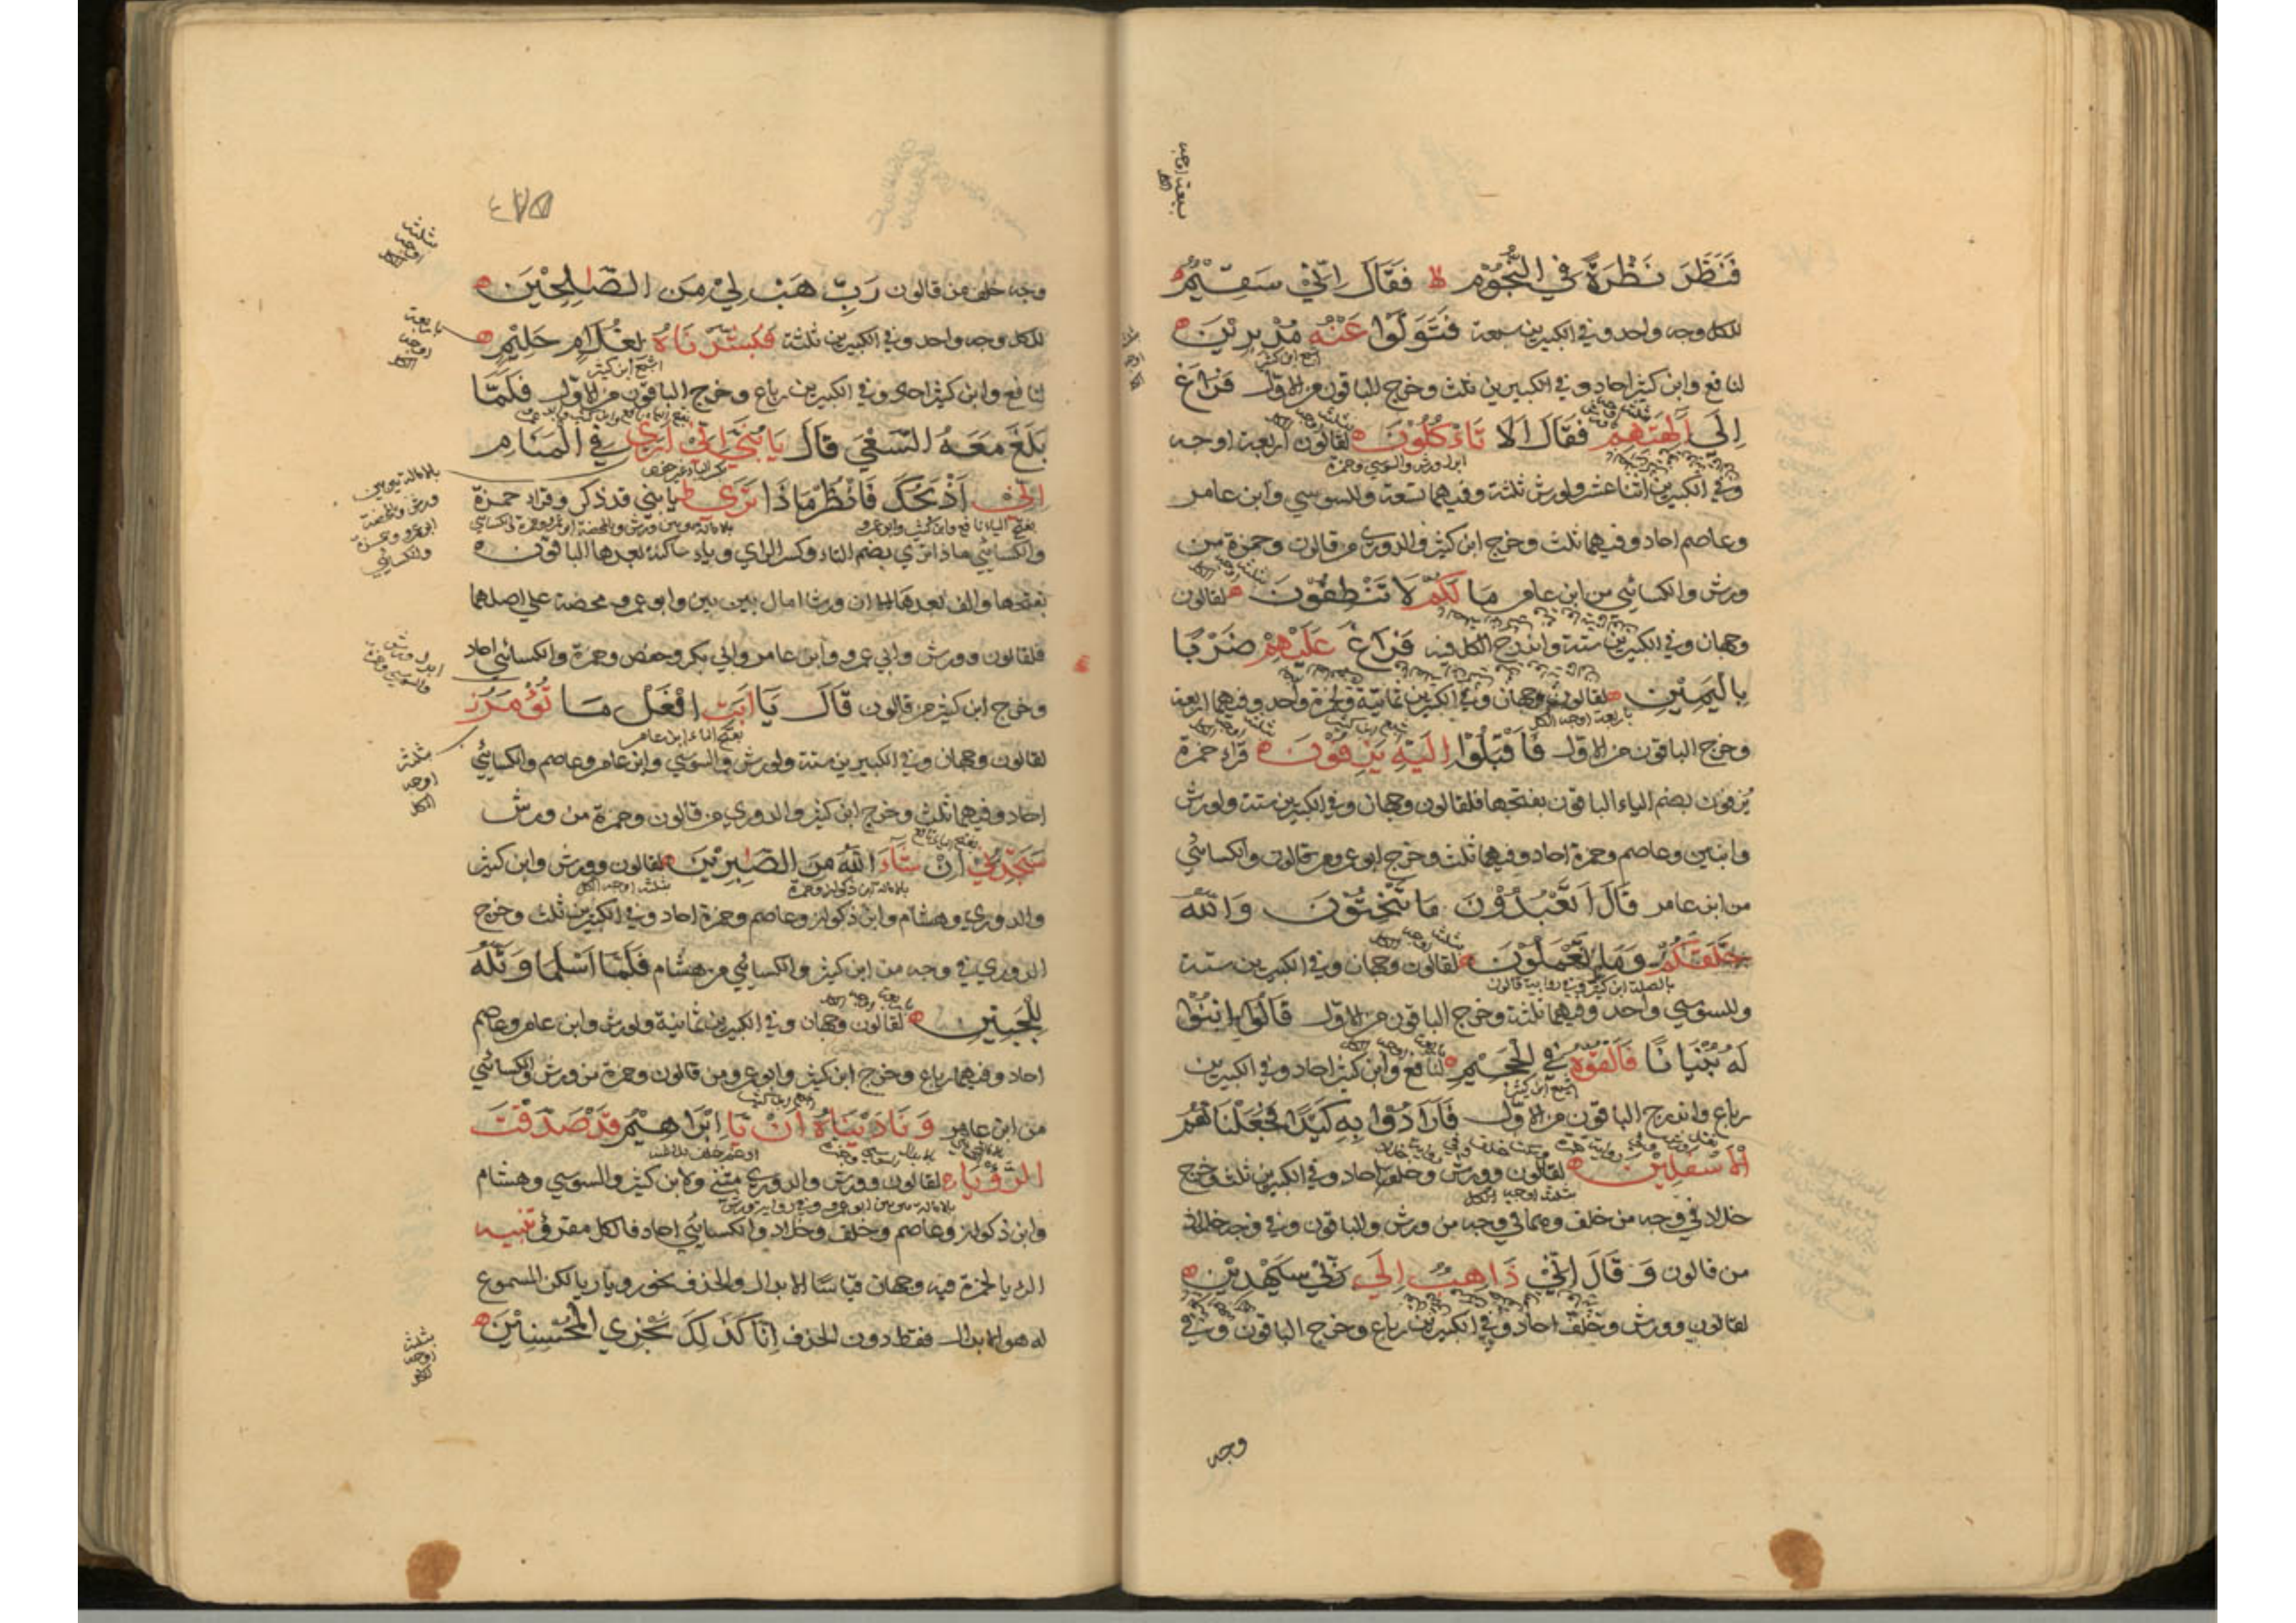 فَنَظَرَ نَظْرَةً فِي النُّجُوْمِ لا فَقَالَ اِنِّيْ سَقِيْمٌ
للكل وجه واحد وفي الكبيرين سبعة فَتَوَلَّوْا عَنْهُ مُدْبِرِيْنَ
اشبع ابن كثير
لنافع وابن كثير احاد وفي الكبيرين ثلث وخرج الباقون من الاول فَرَاغَ
اِلَى اٰلِهَتِهِمْ فَقَالَ اَلَا تَأْكُلُوْنَ لقالون اربعة اوجه
ابدل ورش والسوسي وحمزة
وفي الكبيرين اثنا عشر ولورش ثلثة وفيهما تسعة وللسوسي وابن عامر
وعاصم احاد وفيهما ثلث وخرج ابن كثير والدوري من قالون وحمزة من
ورش والكسائي من ابن عامر مَا لَكُمْ لَا تَنْطِقُوْنَ لقالون
وجهان وفي الكبيرين ستة واندرج الكل فيه فَرَاغَ عَلَيْهِمْ ضَرْبًا
بِالْيَمِيْنِ لقالون وجهان وفي الكبيرين ثمانية ولحمزة واحد وفيهما اربعة
باربعة اوجه الكل
وخرج الباقون من الاول فَاَقْبَلُوْا اِلَيْهِ يَزِفُّوْنَ قراء حمزة
يُزفون بضم الياء الباقون بفتحها فلقالون وجهان وفي الكبيرين ستة ولورش
وابنين وعاصم وحمزة احاد وفيهما ثلث وخرج ابو عمرو من قالون والكسائي
من ابن عامر قَالَ اَتَعْبُدُوْنَ مَا تَنْحِتُوْنَ وَاللّٰهُ
خَلَقَكُمْ وَمَا تَعْمَلُوْنَ لقالون وجهان وفي الكبيرين ستة
بالصلة ابن كثير وفي رواية قالون
وللسوسي واحد وفيهما ثلثة وخرج الباقون من الاول قَالُوا ابْنُوْا
لَهُ بُنْيَانًا فَاَلْقُوْهُ فِي الْجَحِيْمِ لنافع وابن كثير احاد وفي الكبيرين
اشبع ابن كثير
رباع واندرج الباقون من الاول فَاَرَادُوْا بِهِ كَيْدًا فَجَعَلْنَاهُمُ
الْاَسْفَلِيْنَ لقالون وورش وخلف احاد وفي الكبيرين ثلث وخرج
بثلثة اوجه الكل
خلاد في وجه من خلف وهما في وجه من ورش والباقون وفي وجه خلاد
من قالون وَقَالَ اِنِّيْ ذَاهِبٌ اِلٰى رَبِّيْ سَيَهْدِيْنِ
لقالون وورش وخلف احاد وفي الكبيرين رباع وخرج الباقون وفي
وجه
٤٧٥
وجه خلف من قالون رَبِّ هَبْ لِيْ مِنَ الصّٰلِحِيْنَ
للكل وجه واحد وفي الكبيرين ثلثة فَبَشَّرْنَاهُ بِغُلَامٍ حَلِيْمٍ
اشبع ابن كثير
لنافع وابن كثير احاد وفي الكبيرين رباع وخرج الباقون من الاول فَلَمَّا
بَلَغَ مَعَهُ السَّعْيَ قَالَ يَا بُنَيَّ اِنِّيْ اَرٰى فِي الْمَنَامِ
اَنِّيْ اَذْبَحُكَ فَانْظُرْ مَاذَا تَرٰى ط يا بني قد ذكر وقراء حمزة
بفتح الياء نافع وابن كثير وابو عمرو
والكسائي ماذا تري بضم التاء وكسر الراي وياء ساكنة بعدها الباقون
بفتحها والف بعدها الا ان ورشا امال بين بين وابو عمرو محضة علي اصلهما
فلقالون وورش وابي عمرو وابن عامر وابي بكر وحفص وحمزة والكسائي احاد
وخرج ابن كثير من قالون قَالَ يَا اَبَتِ افْعَلْ مَا تُؤْمَرُ
بفتح التاء ابن عامر
لقالون وجهان وفي الكبيرين ستة ولورش والسوسي وابن عامر وعاصم والكسائي
احاد وفيهما ثلث وخرج ابن كثير والدوري من قالون وحمزة من ورش
سَتَجِدُنِيْ اِنْ شَاءَ اللّٰهُ مِنَ الصّٰبِرِيْنَ لقالون وورش وابن كثير
بالامالة ابن ذكوان وحمزة
بثلثة اوجه الكل
والدوري وهشام وابن ذكوان وعاصم وحمزة احاد وفي الكبيرين ثلث وخرج
الدوري في وجه من ابن كثير والكسائي من هشام فَلَمَّا اَسْلَمَا وَتَلَّهُ
لِلْجَبِيْنِ لقالون وجهان وفي الكبيرين ثمانية ولورش وابن عامر وعاصم
احاد وفيهما رباع وخرج ابن كثير وابو عمرو من قالون وحمزة من ورش والكسائي
من ابن عامر وَنَادَيْنَاهُ اَنْ يَا اِبْرَاهِيْمُ قَدْ صَدَّقْتَ
الرُّؤْيَا لقالون وورش والدوري مثنى ولابن كثير والسوسي وهشام
وابن ذكوان وعاصم وخلف وخلاد والكسائي احاد فالكل مفترق تنبيه
الرءيا لحمزة فيه وجهان قياسا الابدال والحذف نحو رويا ريا لكن المسموع
له هو الابدال فقط دون الحذف اِنَّا كَذٰلِكَ نَجْزِي الْمُحْسِنِيْنَ
بثلثة
اوجه
الكل